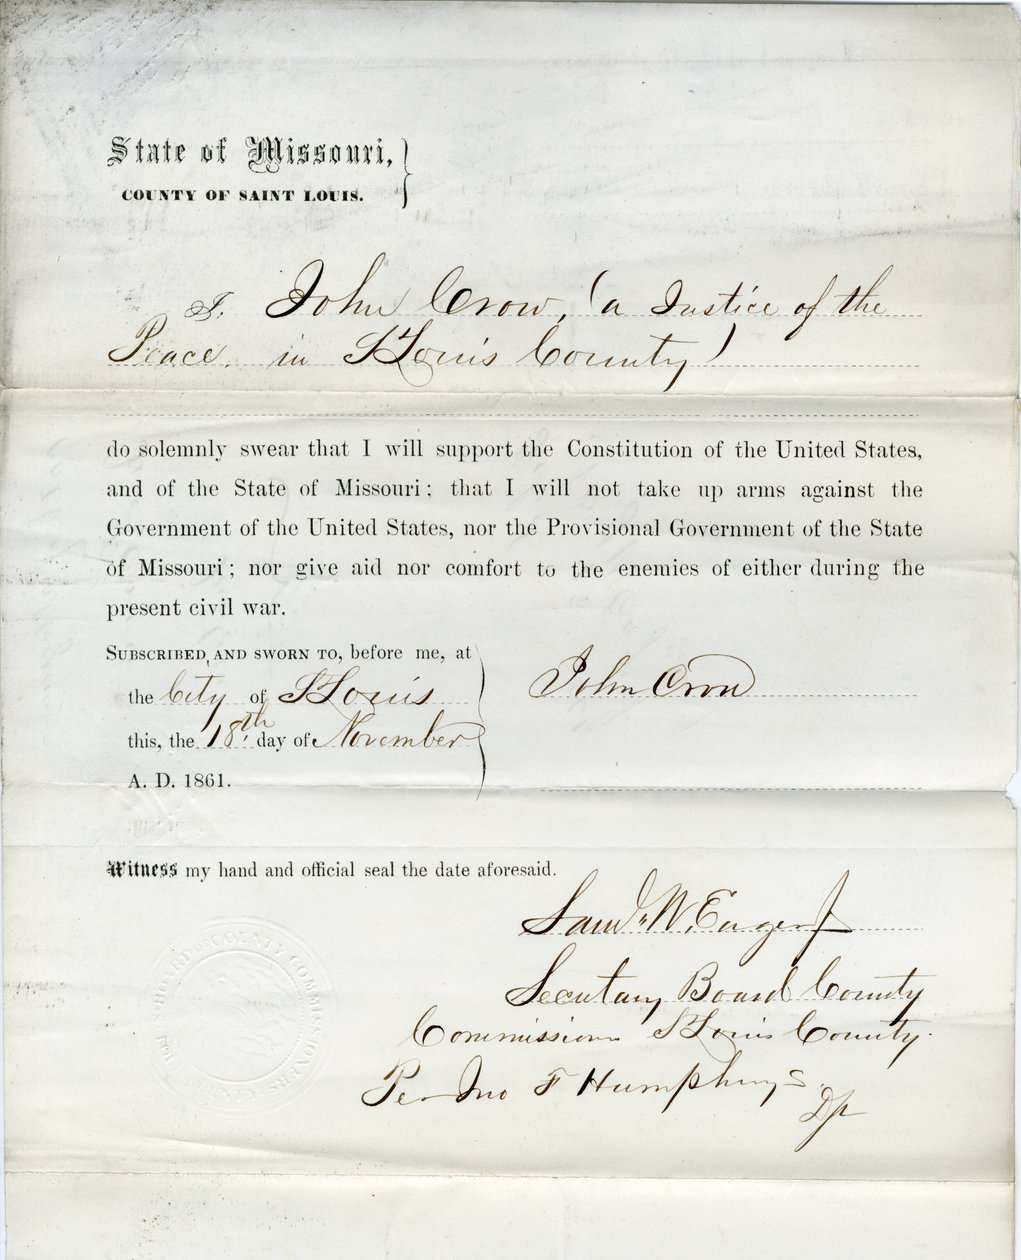 State of Missouri,
COUNTY OF SAINT LOUIS.
I, John Crow, (a Justice of the
Peace in St Louis County)
do solemnly swear that I will support the Constitution of the United States,
and of the State of Missouri; that I will not take up arms against the
Government of the United States, nor the Provisional Government of the State
of Missouri; nor give aid nor comfort to the enemies of either during the
present civil war.
SUBSCRIBED AND SWORN TO, before me, at
the City of St Louis
John Crow
this, the 18th day of November
A. D. 1861.
Witness my hand and official seal the date aforesaid.
Saml. W. Eager Jr
Secretary Board County
Commissioners St Louis County.
Per Jno F Humphreys
Dp
BOARD COUNTY COMMISSIONERS